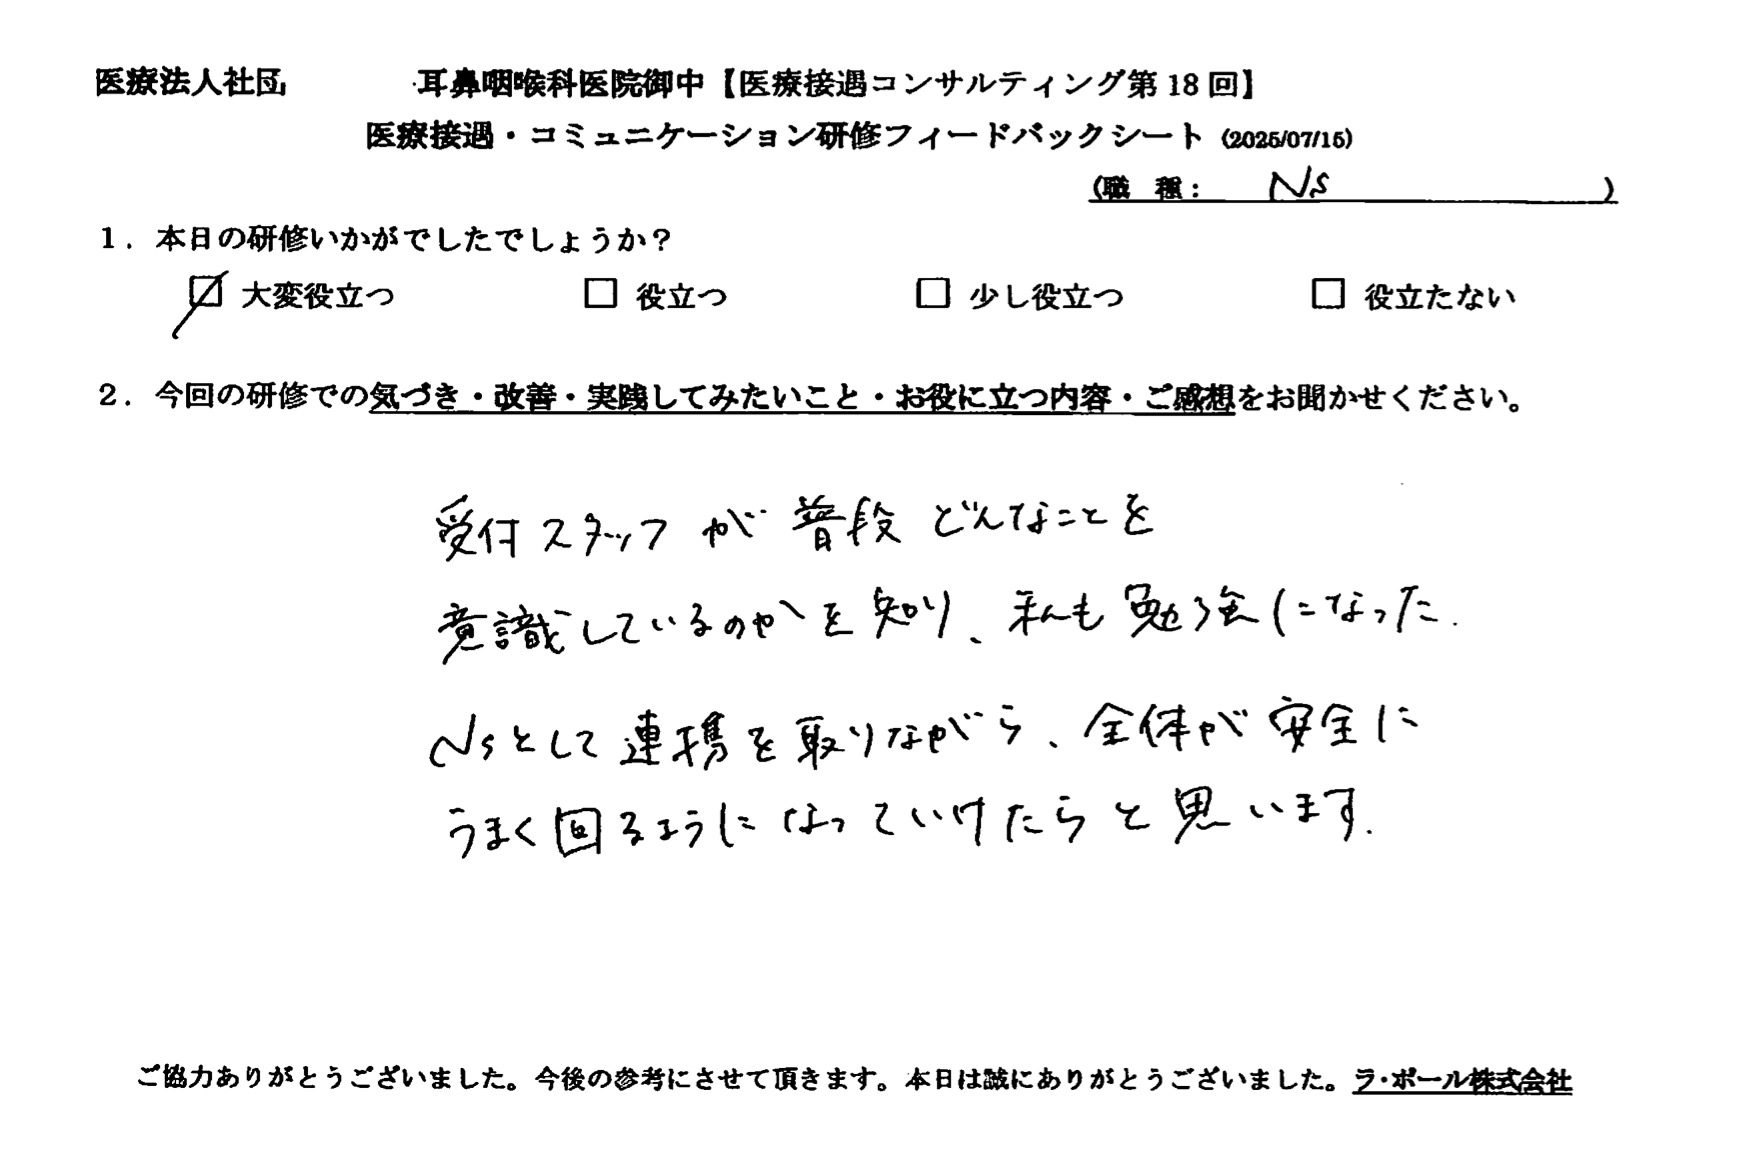 医療法人社団 耳鼻咽喉科医院御中【医療接遇コンサルティング第 18 回】
医療接遇・コミュニケーション研修フィードバックシート (2025/07/15)
(職 種： Ns )
1．本日の研修いかがでしたでしょうか？
☑ 大変役立つ □ 役立つ □ 少し役立つ □ 役立たない
2．今回の研修での気づき・改善・実践してみたいこと・お役に立つ内容・ご感想をお聞かせください。
受付スタッフが普段どんなことを
意識しているのかを知り、私も勉強になった.
Nsとして連携を取りながら、全体が安全に
うまく回るようになっていけたらと思います.
ご協力ありがとうございました。今後の参考にさせて頂きます。本日は誠にありがとうございました。ラ・ポール株式会社